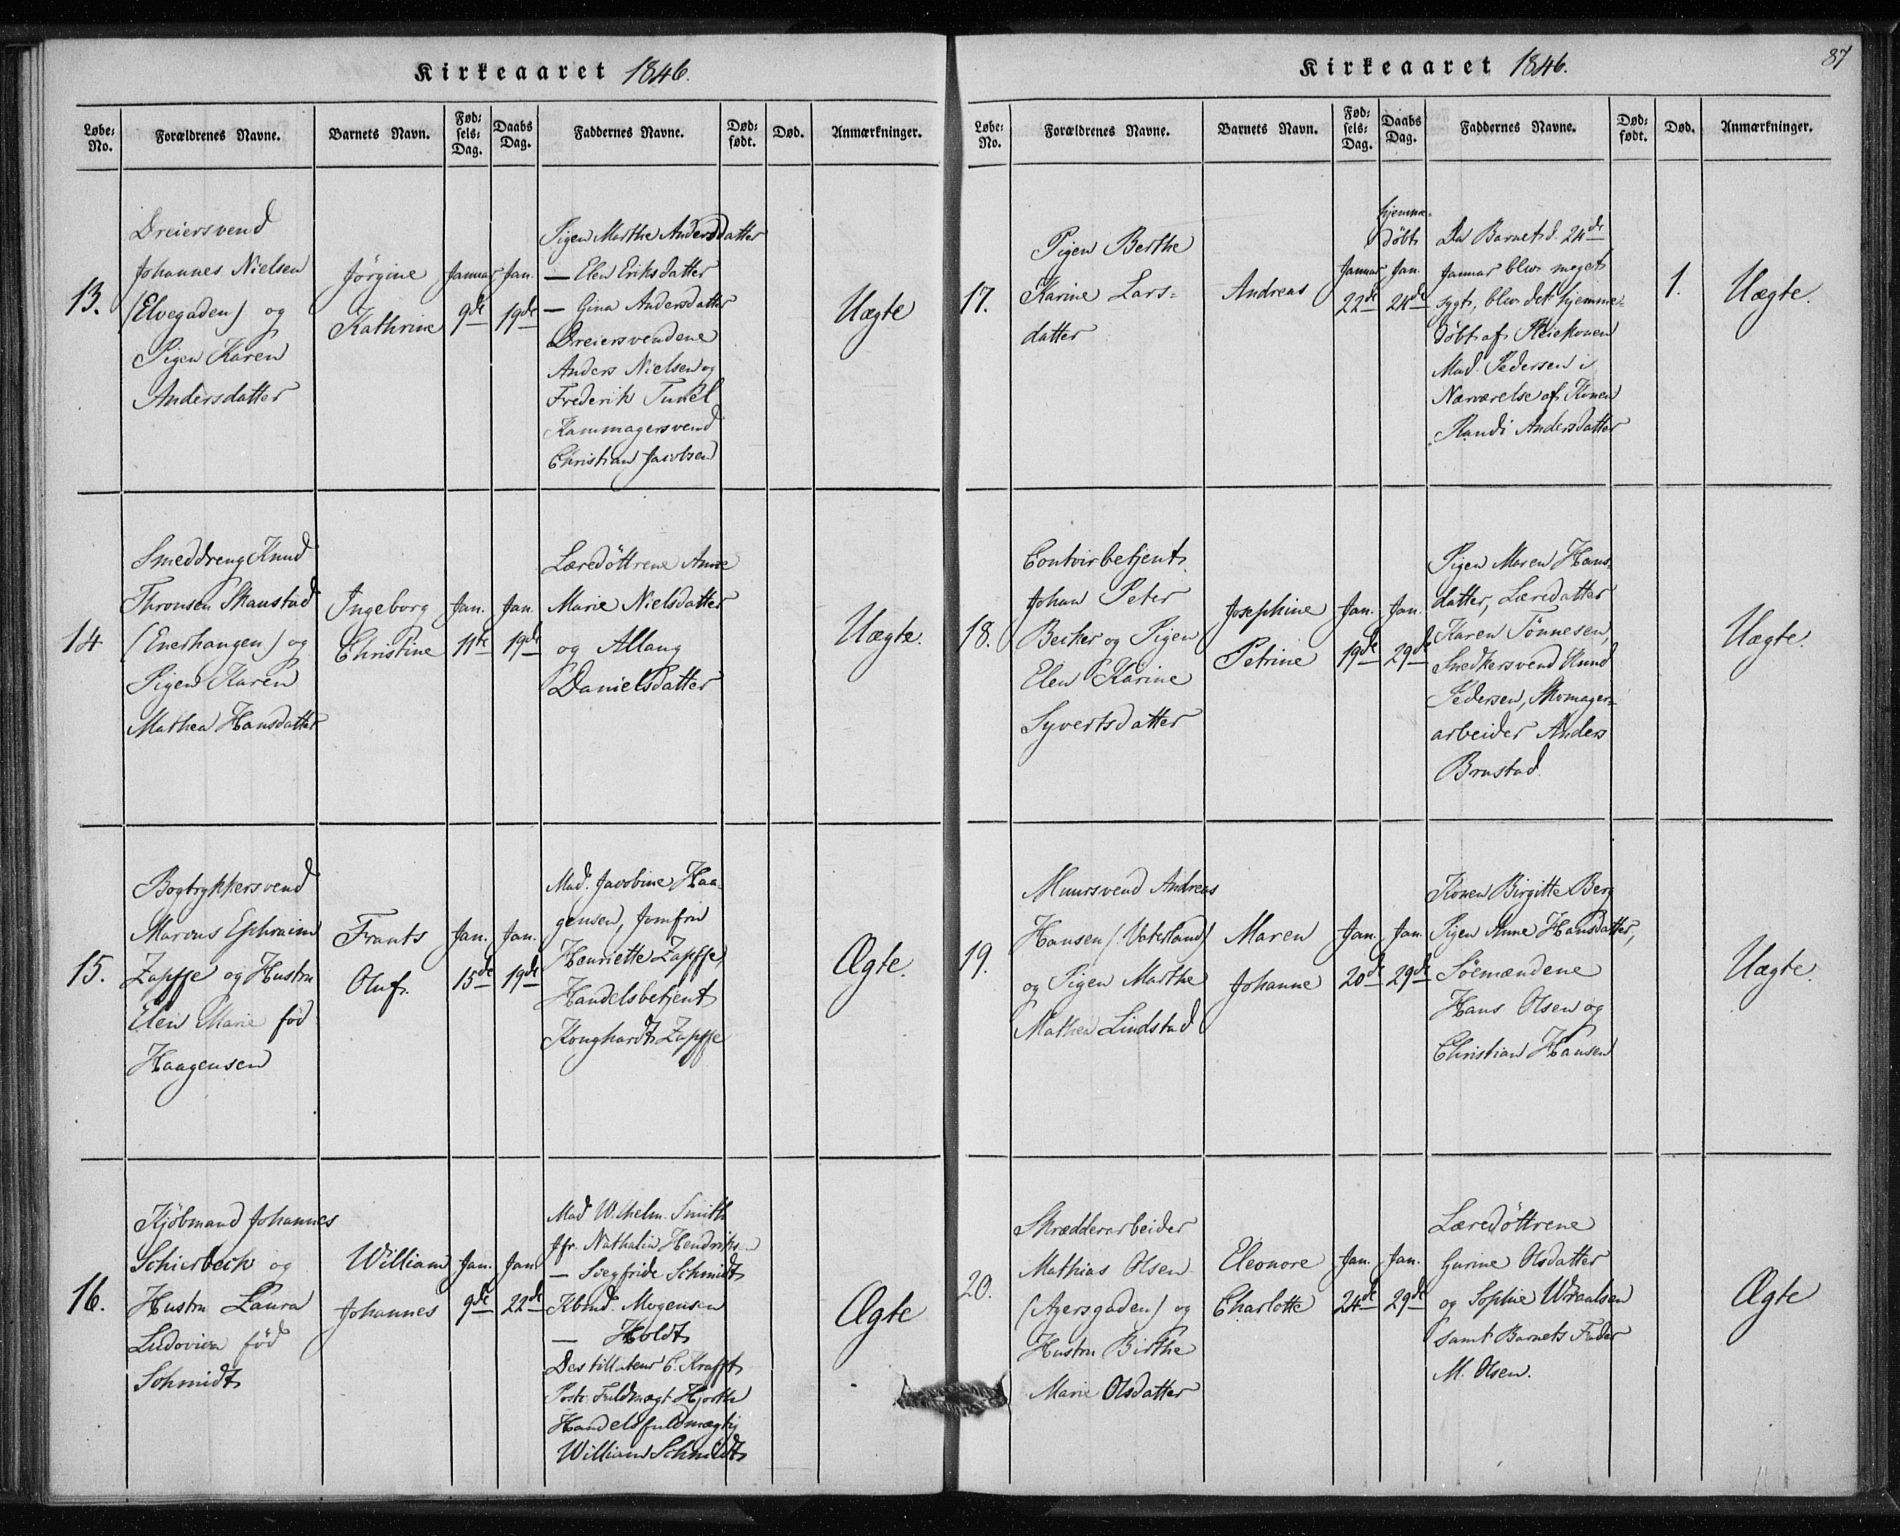 Kirkeaaret 1846.
Løbe-No.
Forældrenes Navne.
Barnets Navn.
Fødsels-Dag.
Daabs Dag.
Faddernes Navne.
Dødfødt.
Død.
Anmærkninger.
13.
Dreiersvend
Johannes Nielsen
(Elvegaden) og
Pigen Karen
Andersdatter
Jörgine
Kathrine
Januar
9de
Jan.
19de
Pigen Marthe Andersdatter
— Elen Eriksdatter
— Gina Andersdatter
Dreiersvendene
Anders Nielsen og
Frederik Tunel
Kammagersvend
Christian Jacobsen
Uægte
14
Smeddreng Knud
Thronsen Skaustad
(Enerhaugen) og
Pigen Karen
Mathea Hansdatter
Ingeborg
Christine
Jan.
11te
Jan.
19de
Læredöttrene Anne
Marie Nielsdatter
og Allang
Danielsdatter
Uægte.
15.
Bogtrykkersvend
Marcus Ephraim
Zapffe og Hustru
Elen Marie föd
Haagensen
Frants
Oluf.
Jan.
15de
Jan.
19de
Mad. Jacobine Haa-
gensen, Jomfru
Henriette Zapffe
Handelsbetjent
Konghardt Zapffe
Ægte.
16.
Kjöbmand Johannes
Schierbeck og
Hustru Laura
Ludovica föd
Schmidt
William
Johannes
Jan.
9de
Jan
22de
Mad Wilhelm. Smith
Jfr. Nathalia Hendriks-
— Siegfride Schmidt
Kbmd. Mogensen
— Holdt
Destillateur C. Krafft
Postc. Fuldmægt. Hjorth
Handelsfuldmægtig
William Schmidt
Ægte
Kirkeaaret 1846.
87
Løbe-No.
Forældrenes Navne.
Barnets Navn.
Fødsels-Dag.
Daabs Dag.
Faddernes Navne.
Dødfødt.
Død.
Anmærkninger.
17.
Pigen Berthe
Karine Lars-
datter
Andreas
Januar
22de
hjemme-
döbt
Jan.
24de
Da Barnet d. 24de
Januar blev meget
sygt, blev det hjemme-
döbt af Pleiekonen
Mad. Pedersen i
Nærværelse af Konen
Randi Andersdatter
1.
Uægte.
18.
Contoirbetjent
Johan Peter
Becker og Pigen
Elen Karine
Syvertsdatter
Josephine
Petrine
Jan.
19de
Jan.
29de
Pigen Maren Hans-
datter, Læredatter
Karen Tönnesen,
Snedkersvend Knud
Pedersen, Skomager-
arbeider Anders
Brustad
Uægte.
19.
Muursvend Andreas
Hansen (: Vaterland)
og Pigen Marthe
Mathea Lindstad
Maren
Johanne
Jan.
20de
Jan.
29de
Konen Birgitte Berg
Pigen Anne Hansdatter,
Söemændene
Hans Olsen og
Christian Hansen
Uægte.
20.
Skrædderarbeider
Mathias Olsen
(Agersgaden) og
Hustru Birthe
Marie Olsdatter
Eleonore
Charlotte
Jan.
24de
Jan.
29de
Læredöttrene
Gurine Olsdatter
og Sophie Wraalsen
samt Barnets Fader
M. Olsen.
Ægte